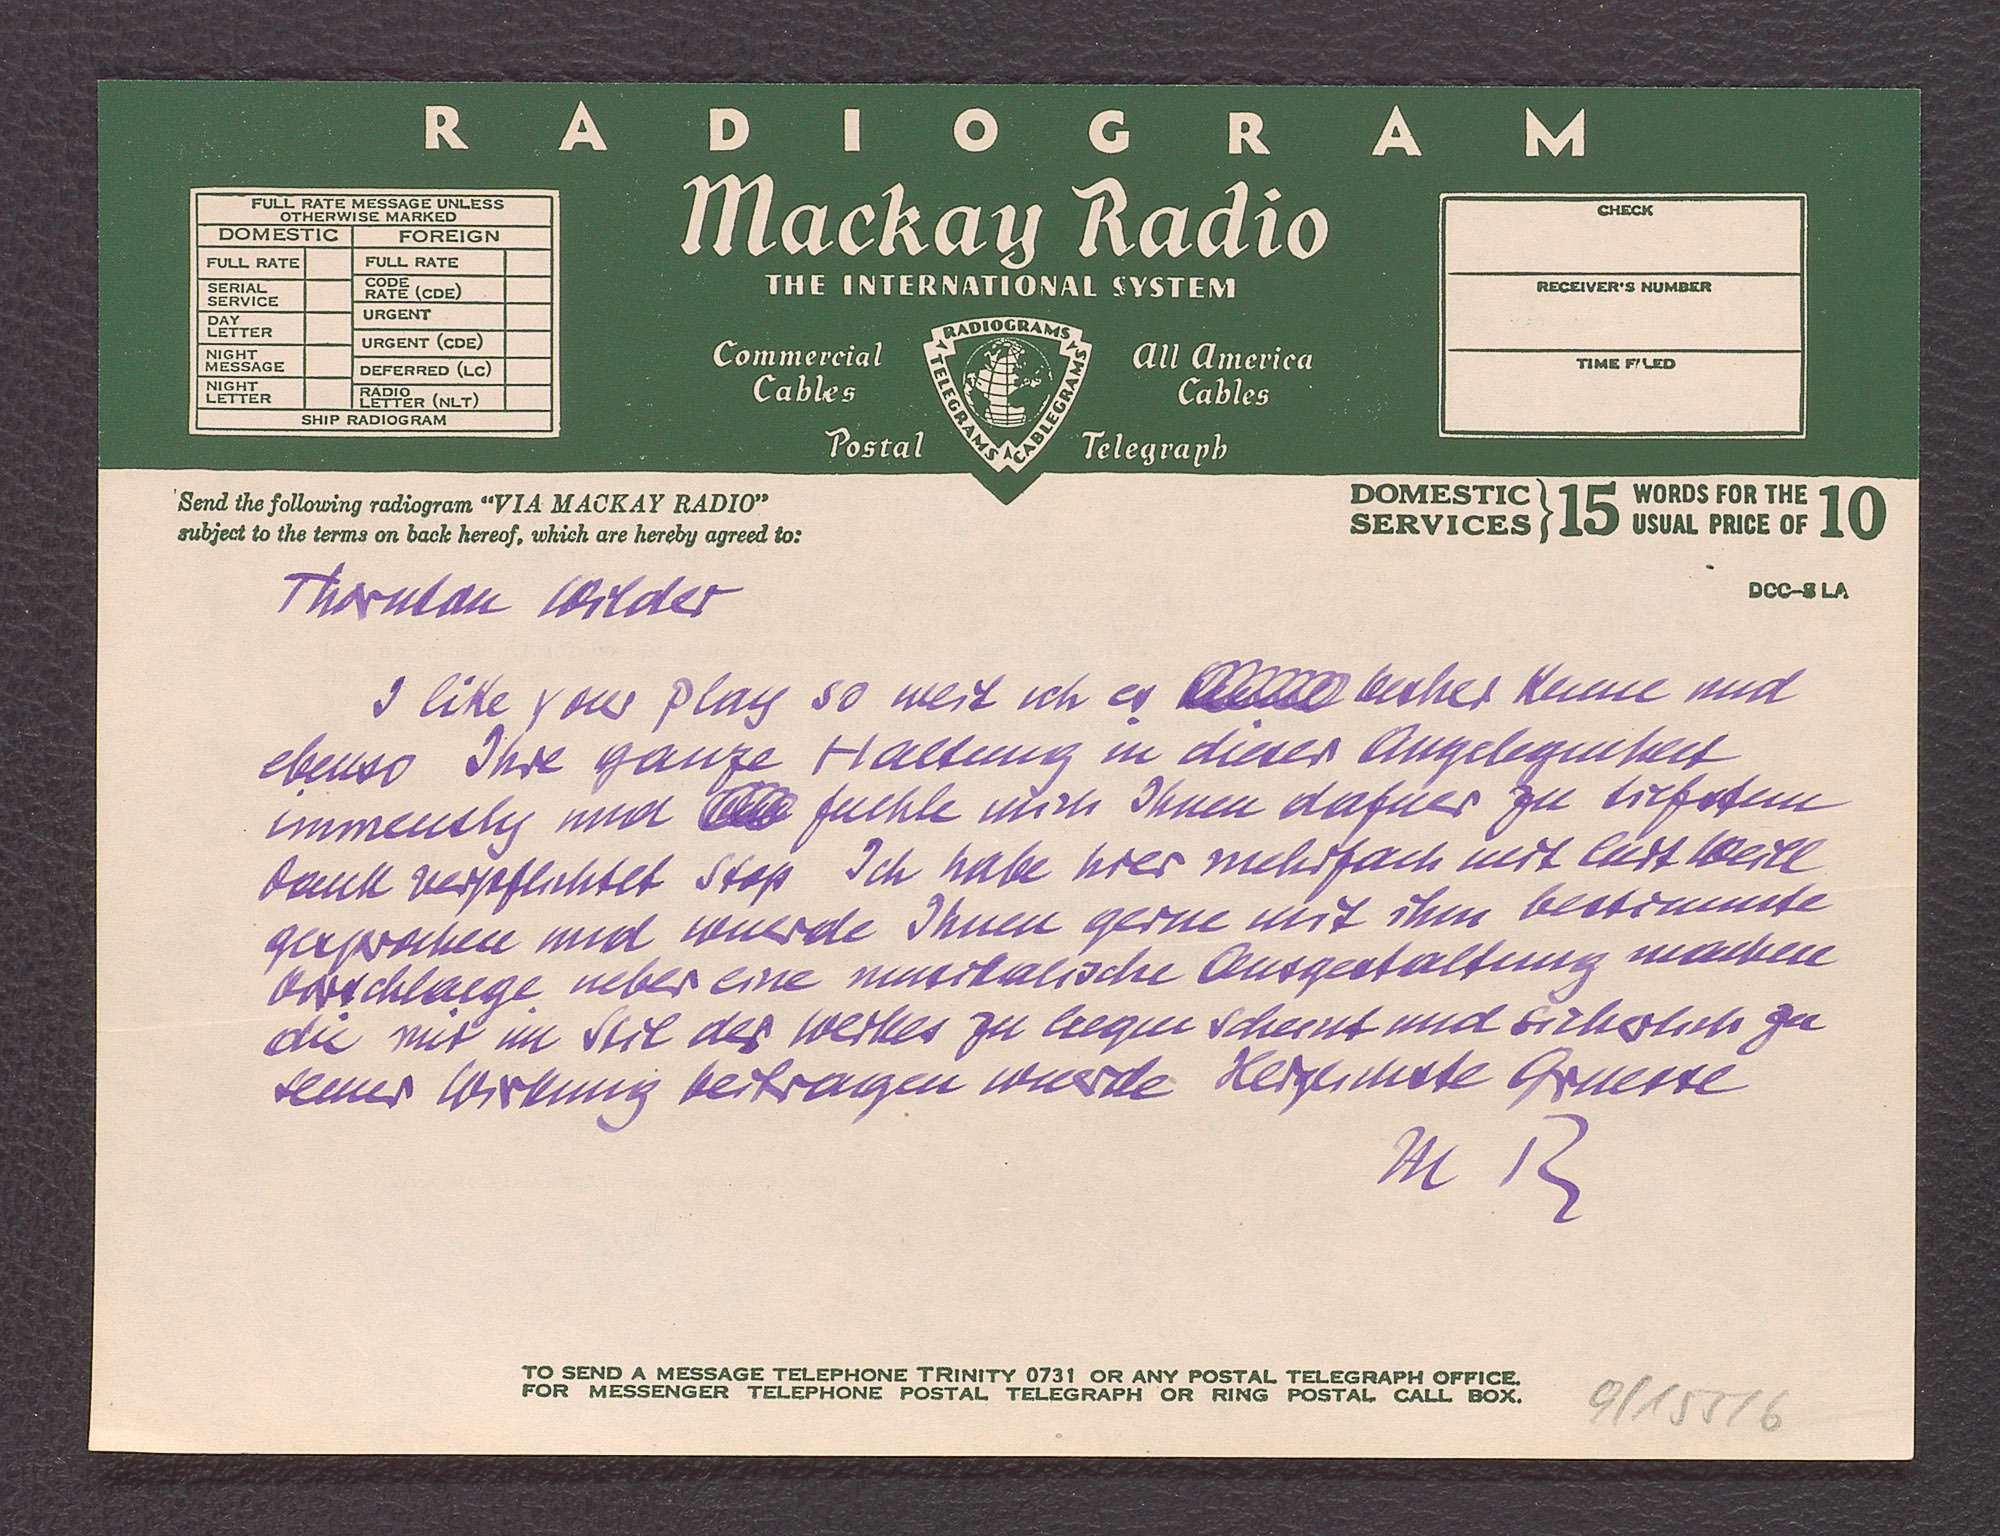 RADIOGRAM
Mackay Radio
THE INTERNATIONAL SYSTEM
Commercial Cables
All America Cables
Postal Telegraph
RADIOGRAMS TELEGRAMS CABLEGRAMS
FULL RATE MESSAGE UNLESS
OTHERWISE MARKED
DOMESTIC FOREIGN
FULL RATE FULL RATE
SERIAL SERVICE CODE RATE (CDE)
DAY LETTER URGENT
URGENT (CDE)
NIGHT MESSAGE DEFERRED (LC)
NIGHT LETTER RADIO LETTER (NLT)
SHIP RADIOGRAM
CHECK
RECEIVER'S NUMBER
TIME FILED
Send the following radiogram "VIA MACKAY RADIO"
subject to the terms on back hereof, which are hereby agreed to:
DOMESTIC SERVICES } 15 WORDS FOR THE USUAL PRICE OF 10
DCC-S LA
Thornton Wilder
I like your play so weit ich es bisher kenne und
ebenso Ihre ganze Haltung in dieser Angelegenheit
immensly und fuehle mich Ihnen dafuer zu tiefstem
Dank verpflichtet Stop Ich habe hier mehrfach mit Curt Weill
gesprochen und wuerde Ihnen gerne mit ihm bestimmte
Vorschlaege ueber eine musikalische Ausgestaltung machen
die mir im Stil des Werkes zu liegen scheint und sicherlich zu
seiner Wirkung beitragen wuerde Herzlichste Gruesse
M R
TO SEND A MESSAGE TELEPHONE TRINITY 0731 OR ANY POSTAL TELEGRAPH OFFICE.
FOR MESSENGER TELEPHONE POSTAL TELEGRAPH OR RING POSTAL CALL BOX.
9/155/6